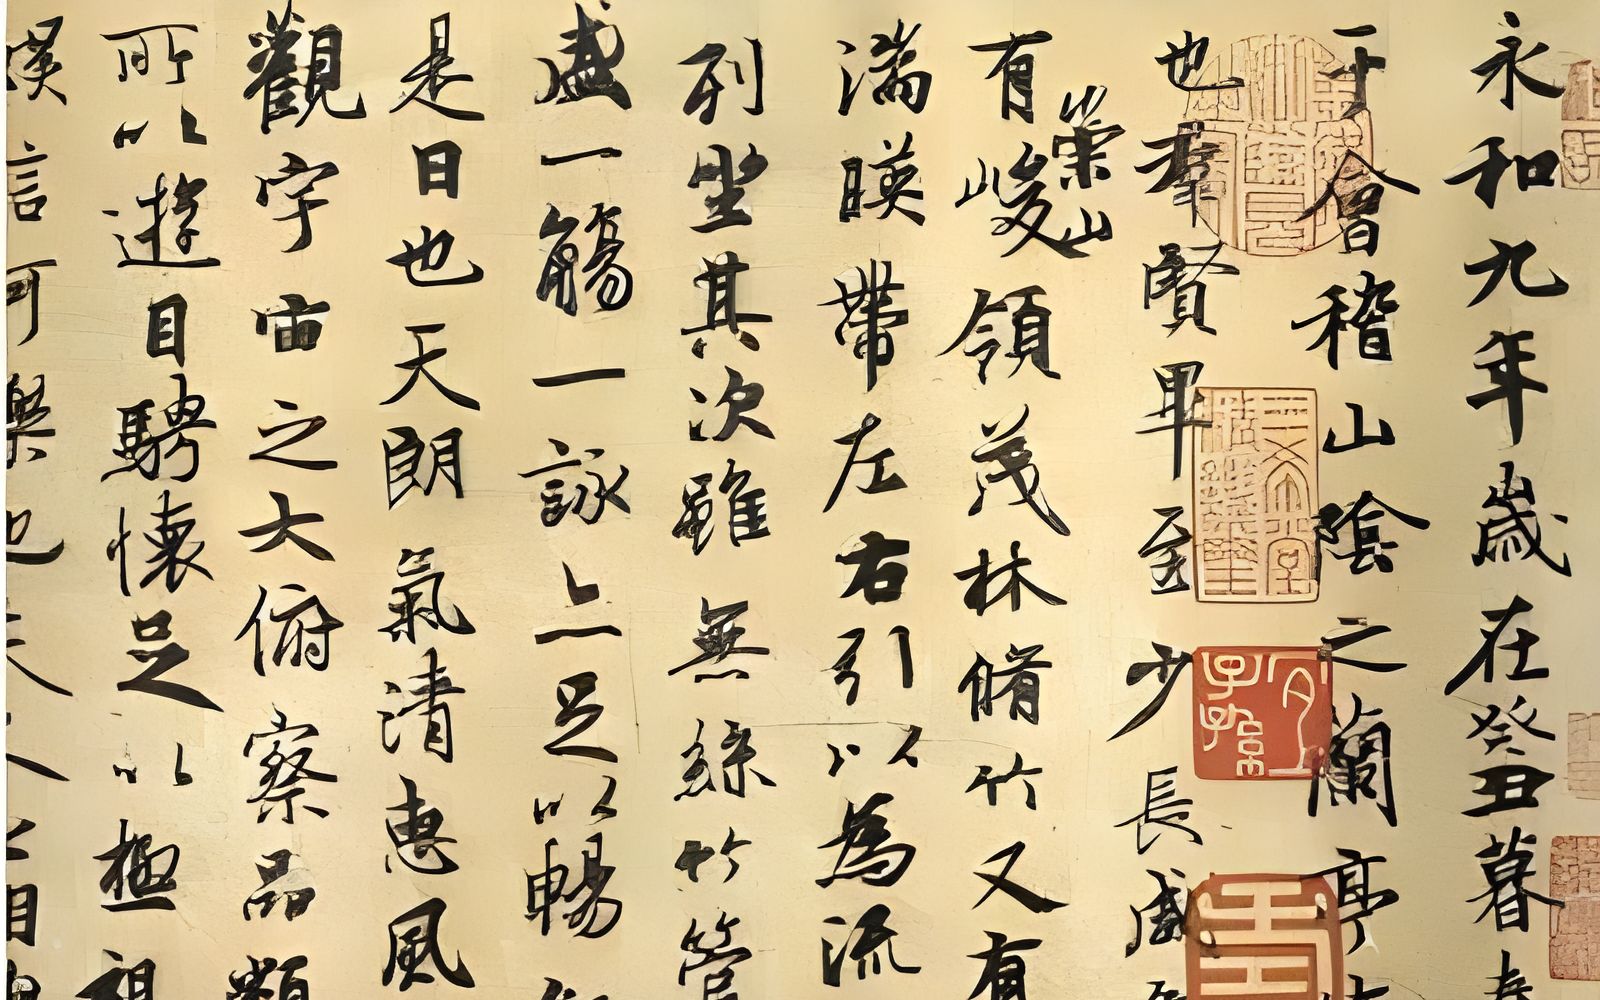 永和九年歲在癸丑暮春
于會稽山陰之蘭亭
也羣賢畢至少長咸
崇山
有峻領茂林脩竹又有
湍暎帶左右引以為流
列坐其次雖無絲竹管
盛一觴一詠亦足以暢
是日也天朗氣清惠風
觀宇宙之大俯察品類
所以遊目騁懷足以極視
娛信可樂也夫人之相